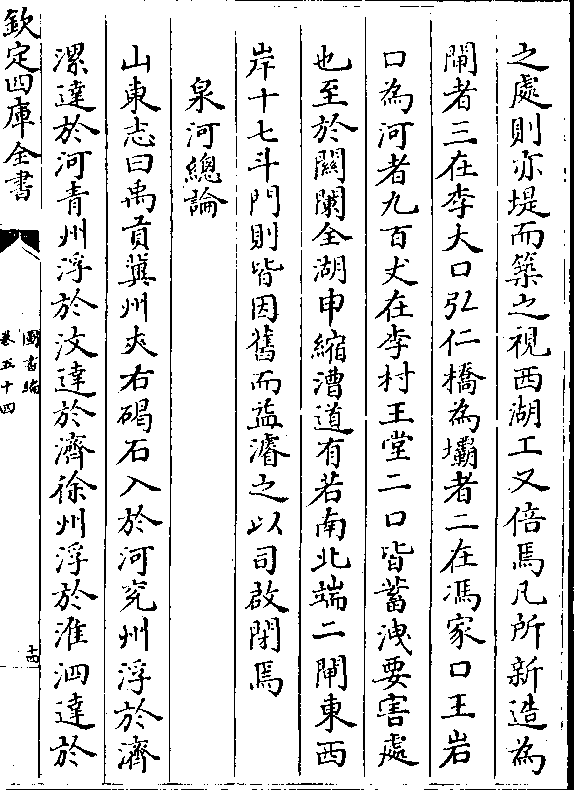 之處則亦堤而築之視西湖工又倍焉凡所新造為
閘者三在李大口弘仁橋為壩者二在馮家口王岩
口為河者九百丈在李村王堂二口皆蓄洩要害處
也至於闗闌全湖申縮漕道有若南北端二閘東西
岸十七斗門則皆因舊而益濬之以司啟閉焉
泉河總論
山東志曰禹貢冀州夾右碣石入於河兖州浮於濟
漯達於河青州浮於汶達於濟徐州浮於淮泗達於
欽定四庫全書
圖書編
卷五十四
十四